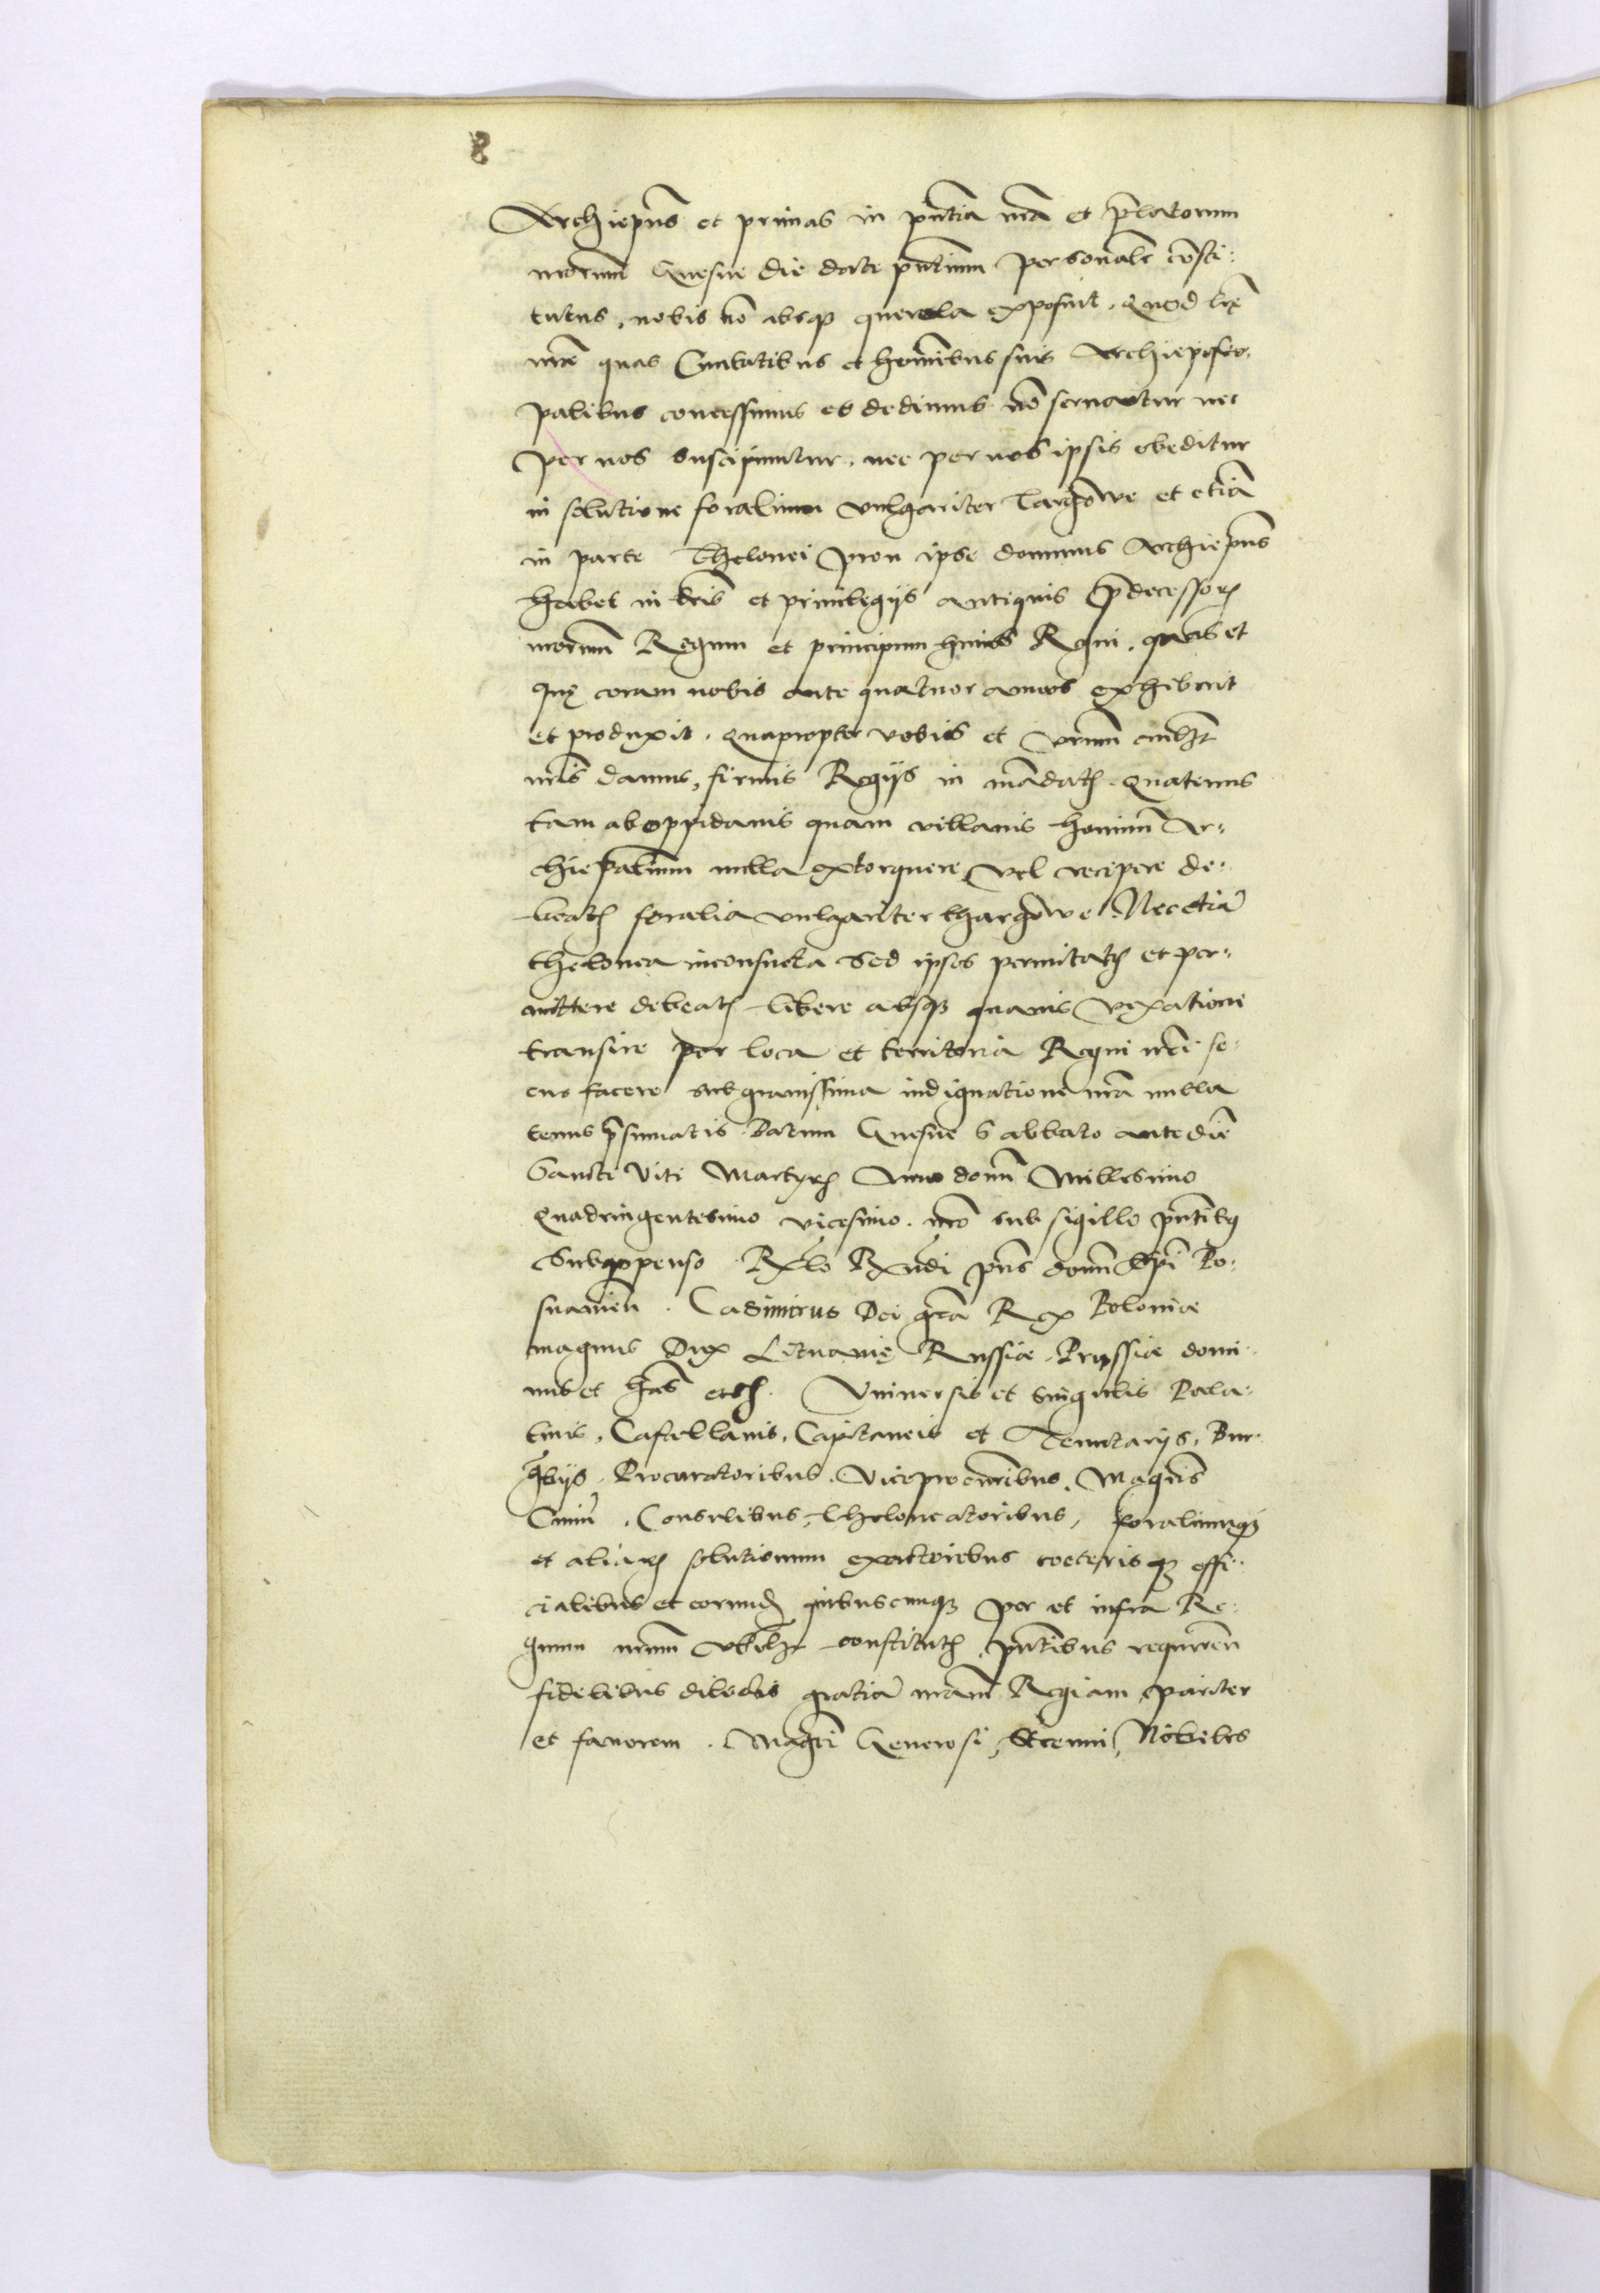 8
Archiep̃us et primas in p̃ntia nr̃a et p̃latorum
nr̃orum Gnesne die date p̃ntium personalr̃ cõsti-
tutus, nobis nõ absq̃ querela exposuit. Quod lr̃ę
nr̃e quas Ciuitatibus et hominibus suis Archiepisco-
palibus concessimus et dedimus nõ seruantur nec
per uos suscipiuntur, nec per uos ipsis obeditur
in solutione foralium vulgariter Targowe et etiã
in parte Thelonei prout ipse dominus Archiep̃us
habet in lr̃is et priuilegijs antiquis p̃decessorꝝ
nr̃orum Regum et principum huius Regni, quas et
quę coram nobis ante quatuor annos exhibuit
et produxit. Quapropter vobis et vr̃um cuilt̃
nr̃is damus, firmis Regijs in mãdatꝭ. Quatenus
tam ab oppidanis quam villanis hominũ Ar-
chiep̃alium nulla extorquere vel recipere de-
beatꝭ foralia vulgariter thargowe. Nec etiã
thelonea inconsueta Sed ipsos permitatꝭ et per-
mittere debeatꝭ libere absq̃ quauis vexatione
transire per loca et territoria Regni nr̃i se-
cus facere sub grauissima indignatione nr̃a nulla
tenus p̃sumatis. Datum Gnesne Sabbato ante diẽ
Sancti Viti Martyrꝭ Anno domĩ Millesimo
Quadringentesimo vicesimo. nr̃o sub sigillo p̃ntibꝫ
Subappenso. R̃lo R̃ndi p̃ris domĩ Ep̃i Po-
snanieñ. Casimirus Dei gr̃a Rex Poloniæ
magnus Dux Lituanię Russiæ Prussiæ domi-
nus et hæ̃s etcꝭ. Vniuersis et singulis Pala-
tinis, Castellanis, Capitaneis et Tenutarijs, Bur-
g̃bijs, Procuratoribus, Viceprocur̃ibus, Magr̃is
Ciuiũ, Consulibus, Theloneatoribus, foraliumqꝫ
et aliarꝝ solutionum exactoribus coeterisqꝫ offi-
cialibus et eorundꝭ quibuscunqꝫ per et infra Re-
gnum nr̃um vbilt̃ constitutꝭ p̃ntibus requireñ
fidelibus dilectis gratiã nr̃am Regiam pariter
et fauorem. Magci̇ Generosi, Strenui, Nobiles